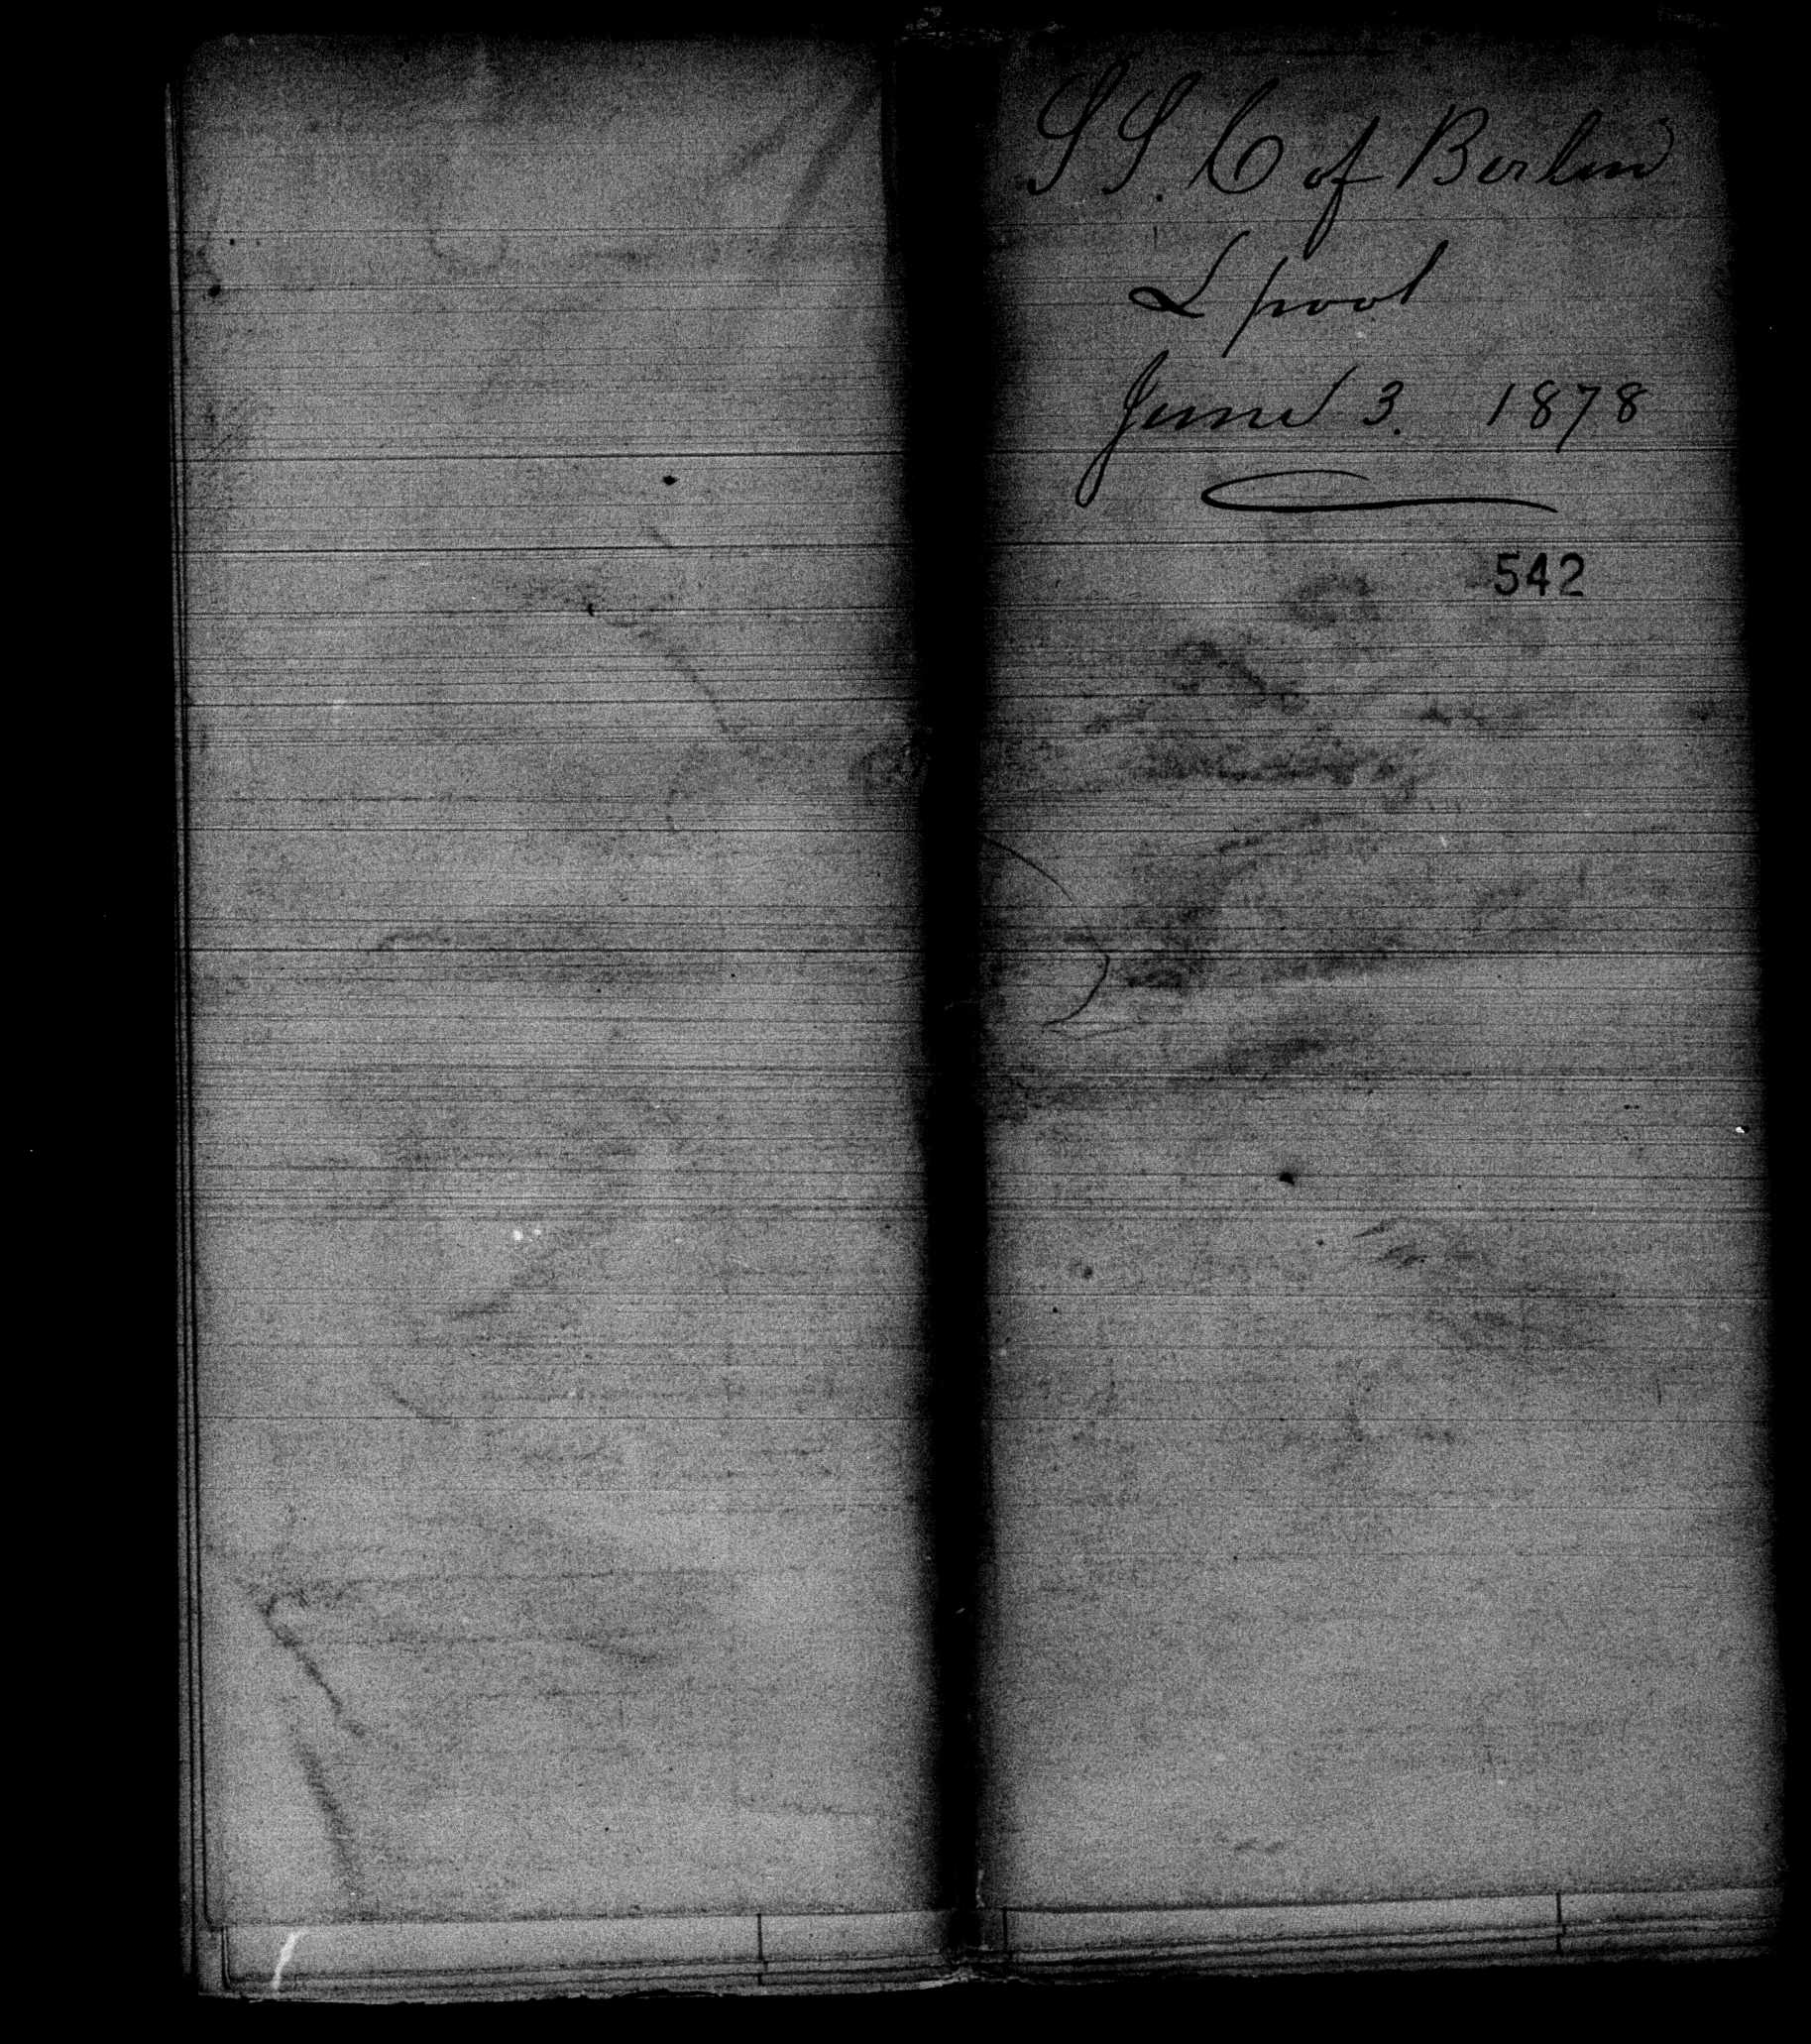 SS. C of Berlin
L pool
June 3. 1878
542